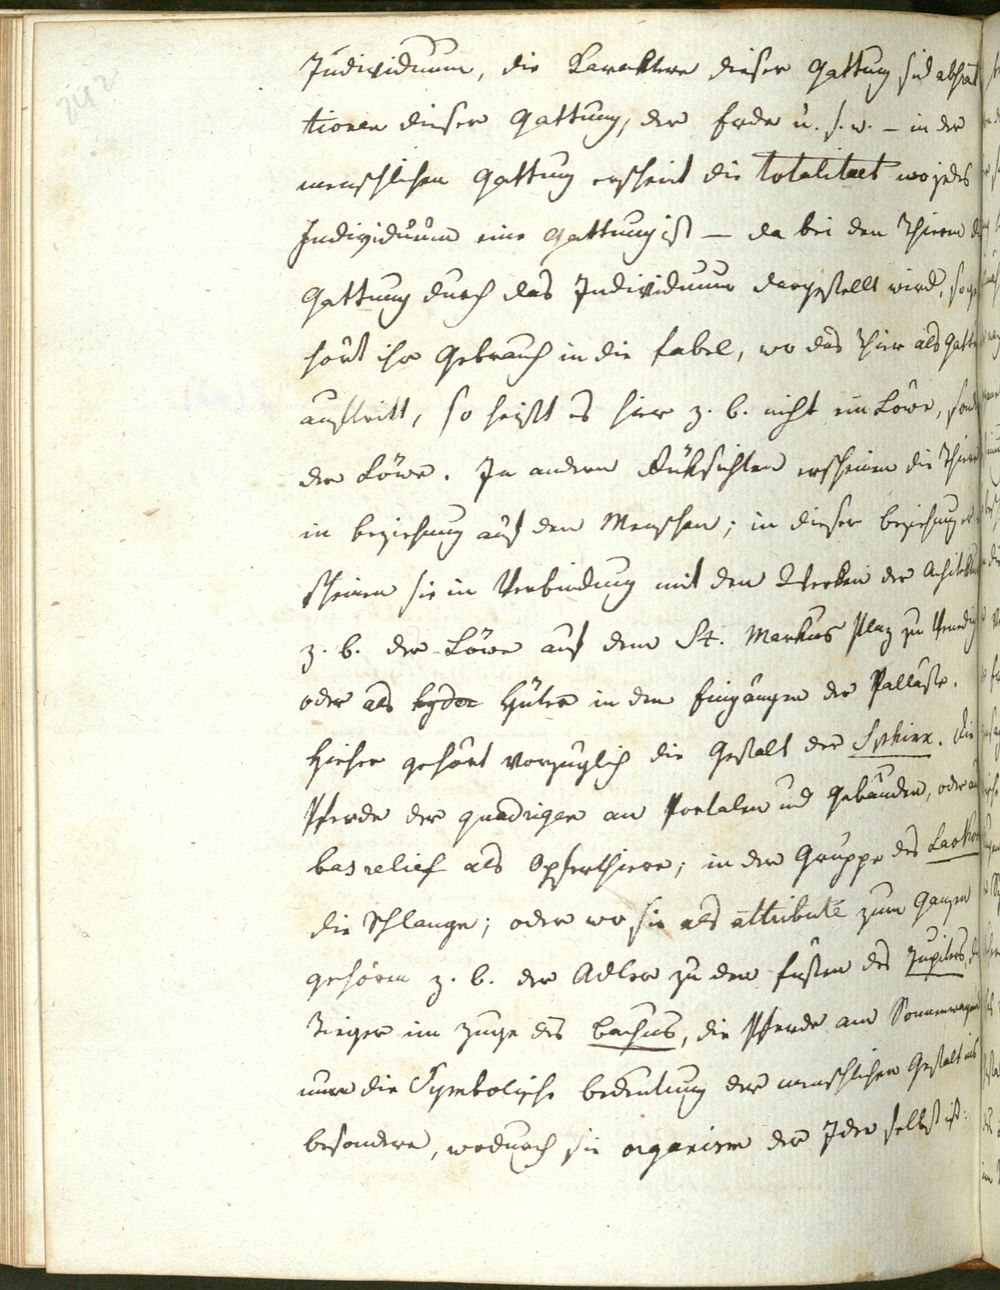 Individuum, die Karaktere dieser Gattung sind abstrak
tionen dieser Gattung, der Erde u. s. w. – in der
menschlichen Gattung erscheint die Totalitaet wo jedes
Individuum eine Gattung ist – da bei den Thieren die
Gattung durch das Individuum dargestellt wird, so ge
hört ihr Gebrauch in die Fabel, wo das Thier als Gattung
auftritt, so heißt es hier z. b. nicht ein Löwe, sondern
der Löwe. In andern Rüksichten erscheinen die Thiere
in beziehung auf den Menschen; in dieser beziehung er
scheinen sie in Verbindung mit den Werken der Achitektur
z. b. der Löwe auf dem St. Markus Plaz zu Venedig
oder als Hüter in den Eingängen der Palläste.
Hieher gehört vorzüglich die Gestalt der Sphinx. Die
Pferde der quadrigen an Portalen und Gebäuden, oder am
basrelief als Opferthiere; in der Gruppe des Laokoon
die Schlange; oder wo sie als attribute zum Ganzen
gehören z. b. der Adler zu den füßen des Jupiters, die
Tieger im Zuge des Bachus, die Pferde am Sonnenwagen
nun die Symbolische bedeutung der menschlichen Gestalt ins
besondere, wodurch sie organism der Idee selbst ist: